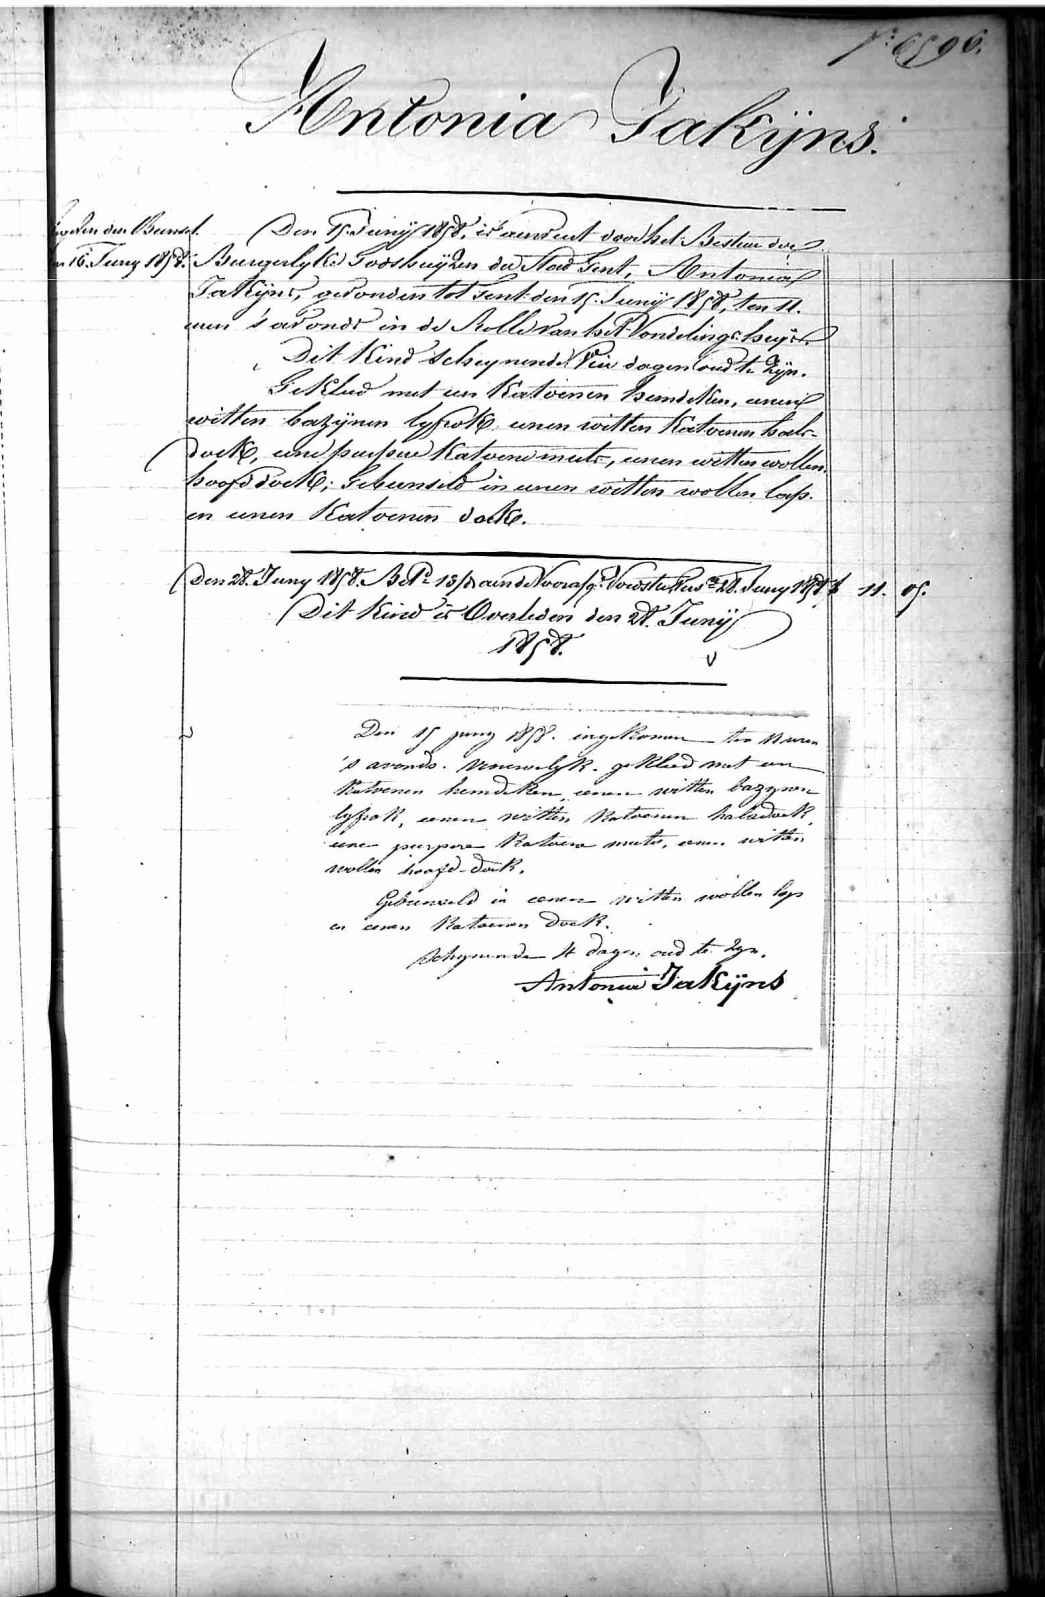 6596.
Antonia Jakijns.
den Bunsel.
16. Juny 1858.
Den 15. Junij 1858, is aenveert door het Bestuer der
Burgerlyke Godshuijzen der Stad Gent, Antonia
Jakijns, gevonden tot Gent den 15. Junij 1858, ten 11.
uren 's avonds in de Rolle van het Vondelingshuijs.
Dit Kind schynende Vier dagen oud te zyn.
Gekleed met een Katoenen hemdeken, eenen
witten bazynen lyfrok, eenen witten Katoenen hals-
doek, eene purpere Katoene muts, eenen witten wollen
hoofddoek; Gebunseld in eenen witten wollen lap.
en eenen Katoenen doek.
Den 28. Juny 1858. 28. Juny 1858 11. 05.
Dit Kind is Overleden den 28. Junij
1858.
Den 15 juny 1858. ingekomen ten 11 uren
's avonds. vrouwelyk. gekleed met een
Katoenen hemdeken, eenen witten bazynen
lyfrok, eenen witten Katoenen halsdoek,
eene purpere Katoene muts, eenen witten
wollen hoofd-doek.
Gebunseld in eenen witten wollen lap
en eenen Katoenen doek.
schynende 4 dagen oud te zyn.
Antonia Jakijns